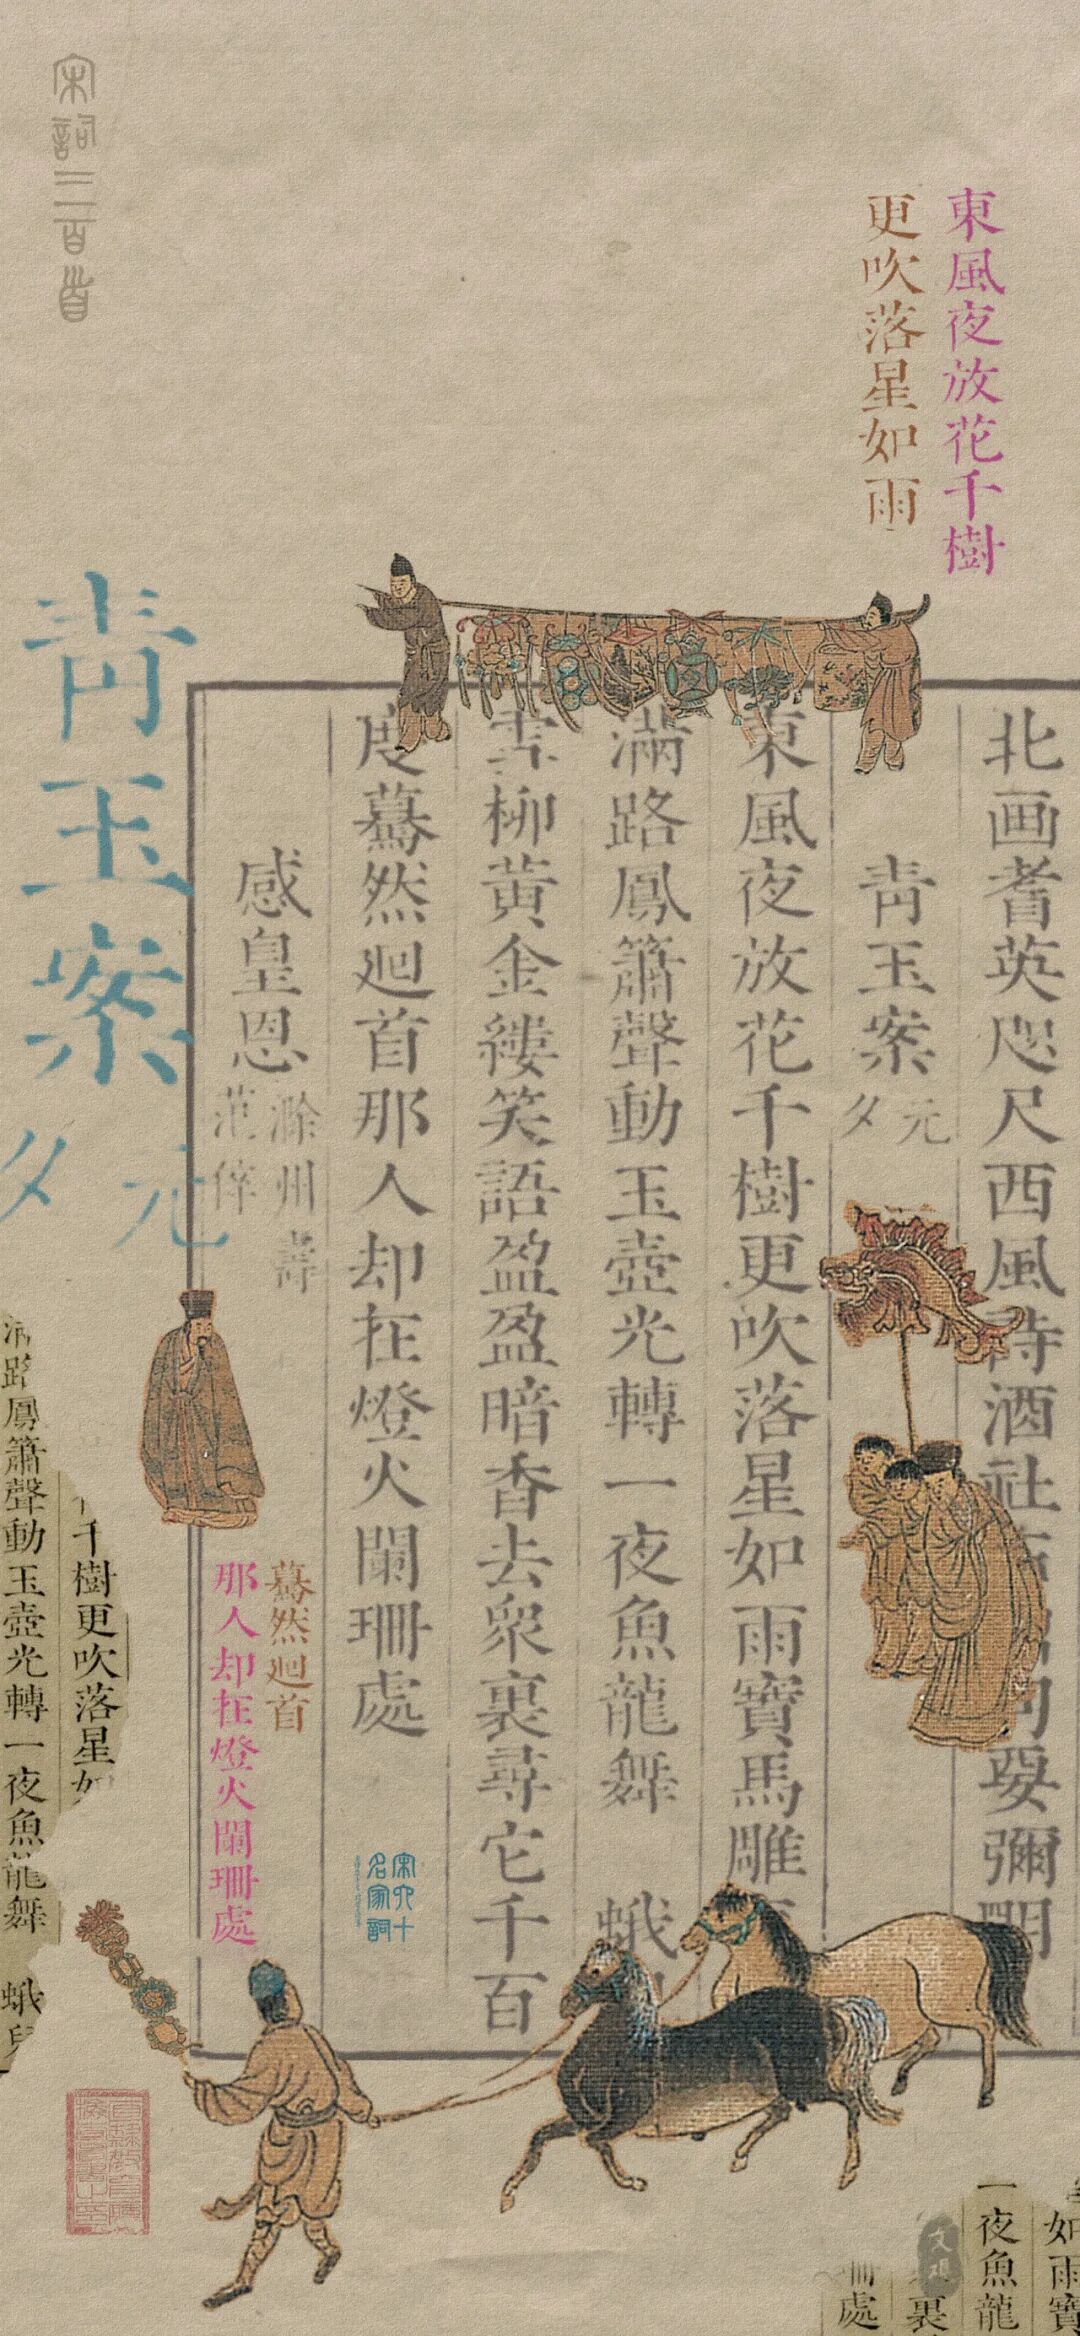 宋詞三百首
東風夜放花千樹
更吹落星如雨
青玉案
元夕
北画耆英咫尺西風詩酒社
要彌明
青玉案
元夕
東風夜放花千樹更吹落星如雨寶馬雕
滿路鳳簫聲動玉壺光轉一夜魚龍舞 蛾
雪柳黃金縷笑語盈盈暗香去眾裏尋它千百
度驀然迴首那人却在燈火闌珊處
感皇恩
滁州壽
范倅
驀然迴首
那人却在燈火闌珊處
宋六十
名家詞
千樹更吹落星如
滿路鳳簫聲動玉壺光轉一夜魚龍舞 蛾兒
如雨寶
一夜魚龍
裏
珊處